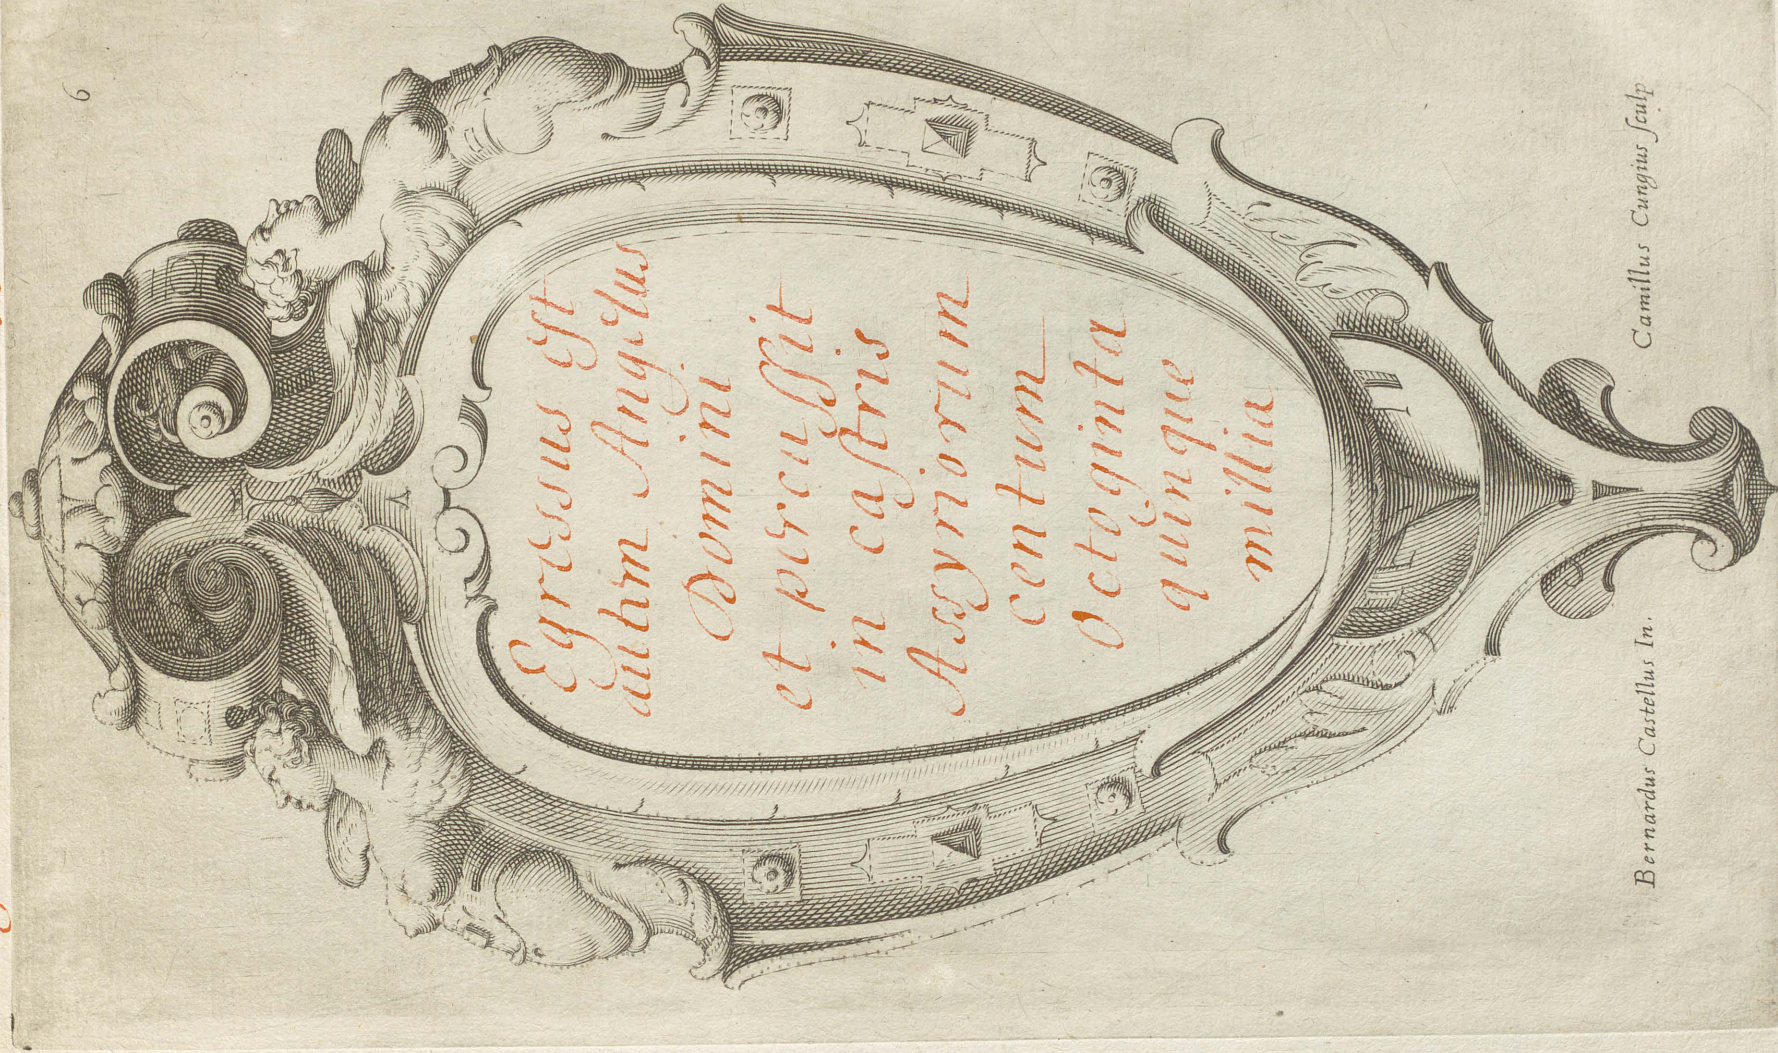 6
Egressus Est
autem Angelus
Domini
et percussit
in castris
Assyriorum
centum
Octoginta
quinque
millia
Bernardus Castellus In.
Camillus Cungius sculp